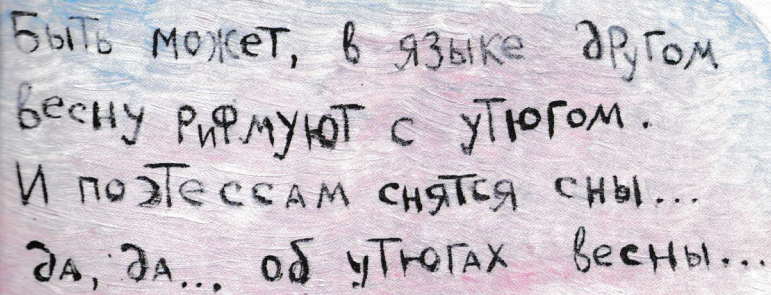 Быть может, в языке другом
весну рифмуют с утюгом.
И поэтессам снятся сны...
да, да... об утюгах весны...